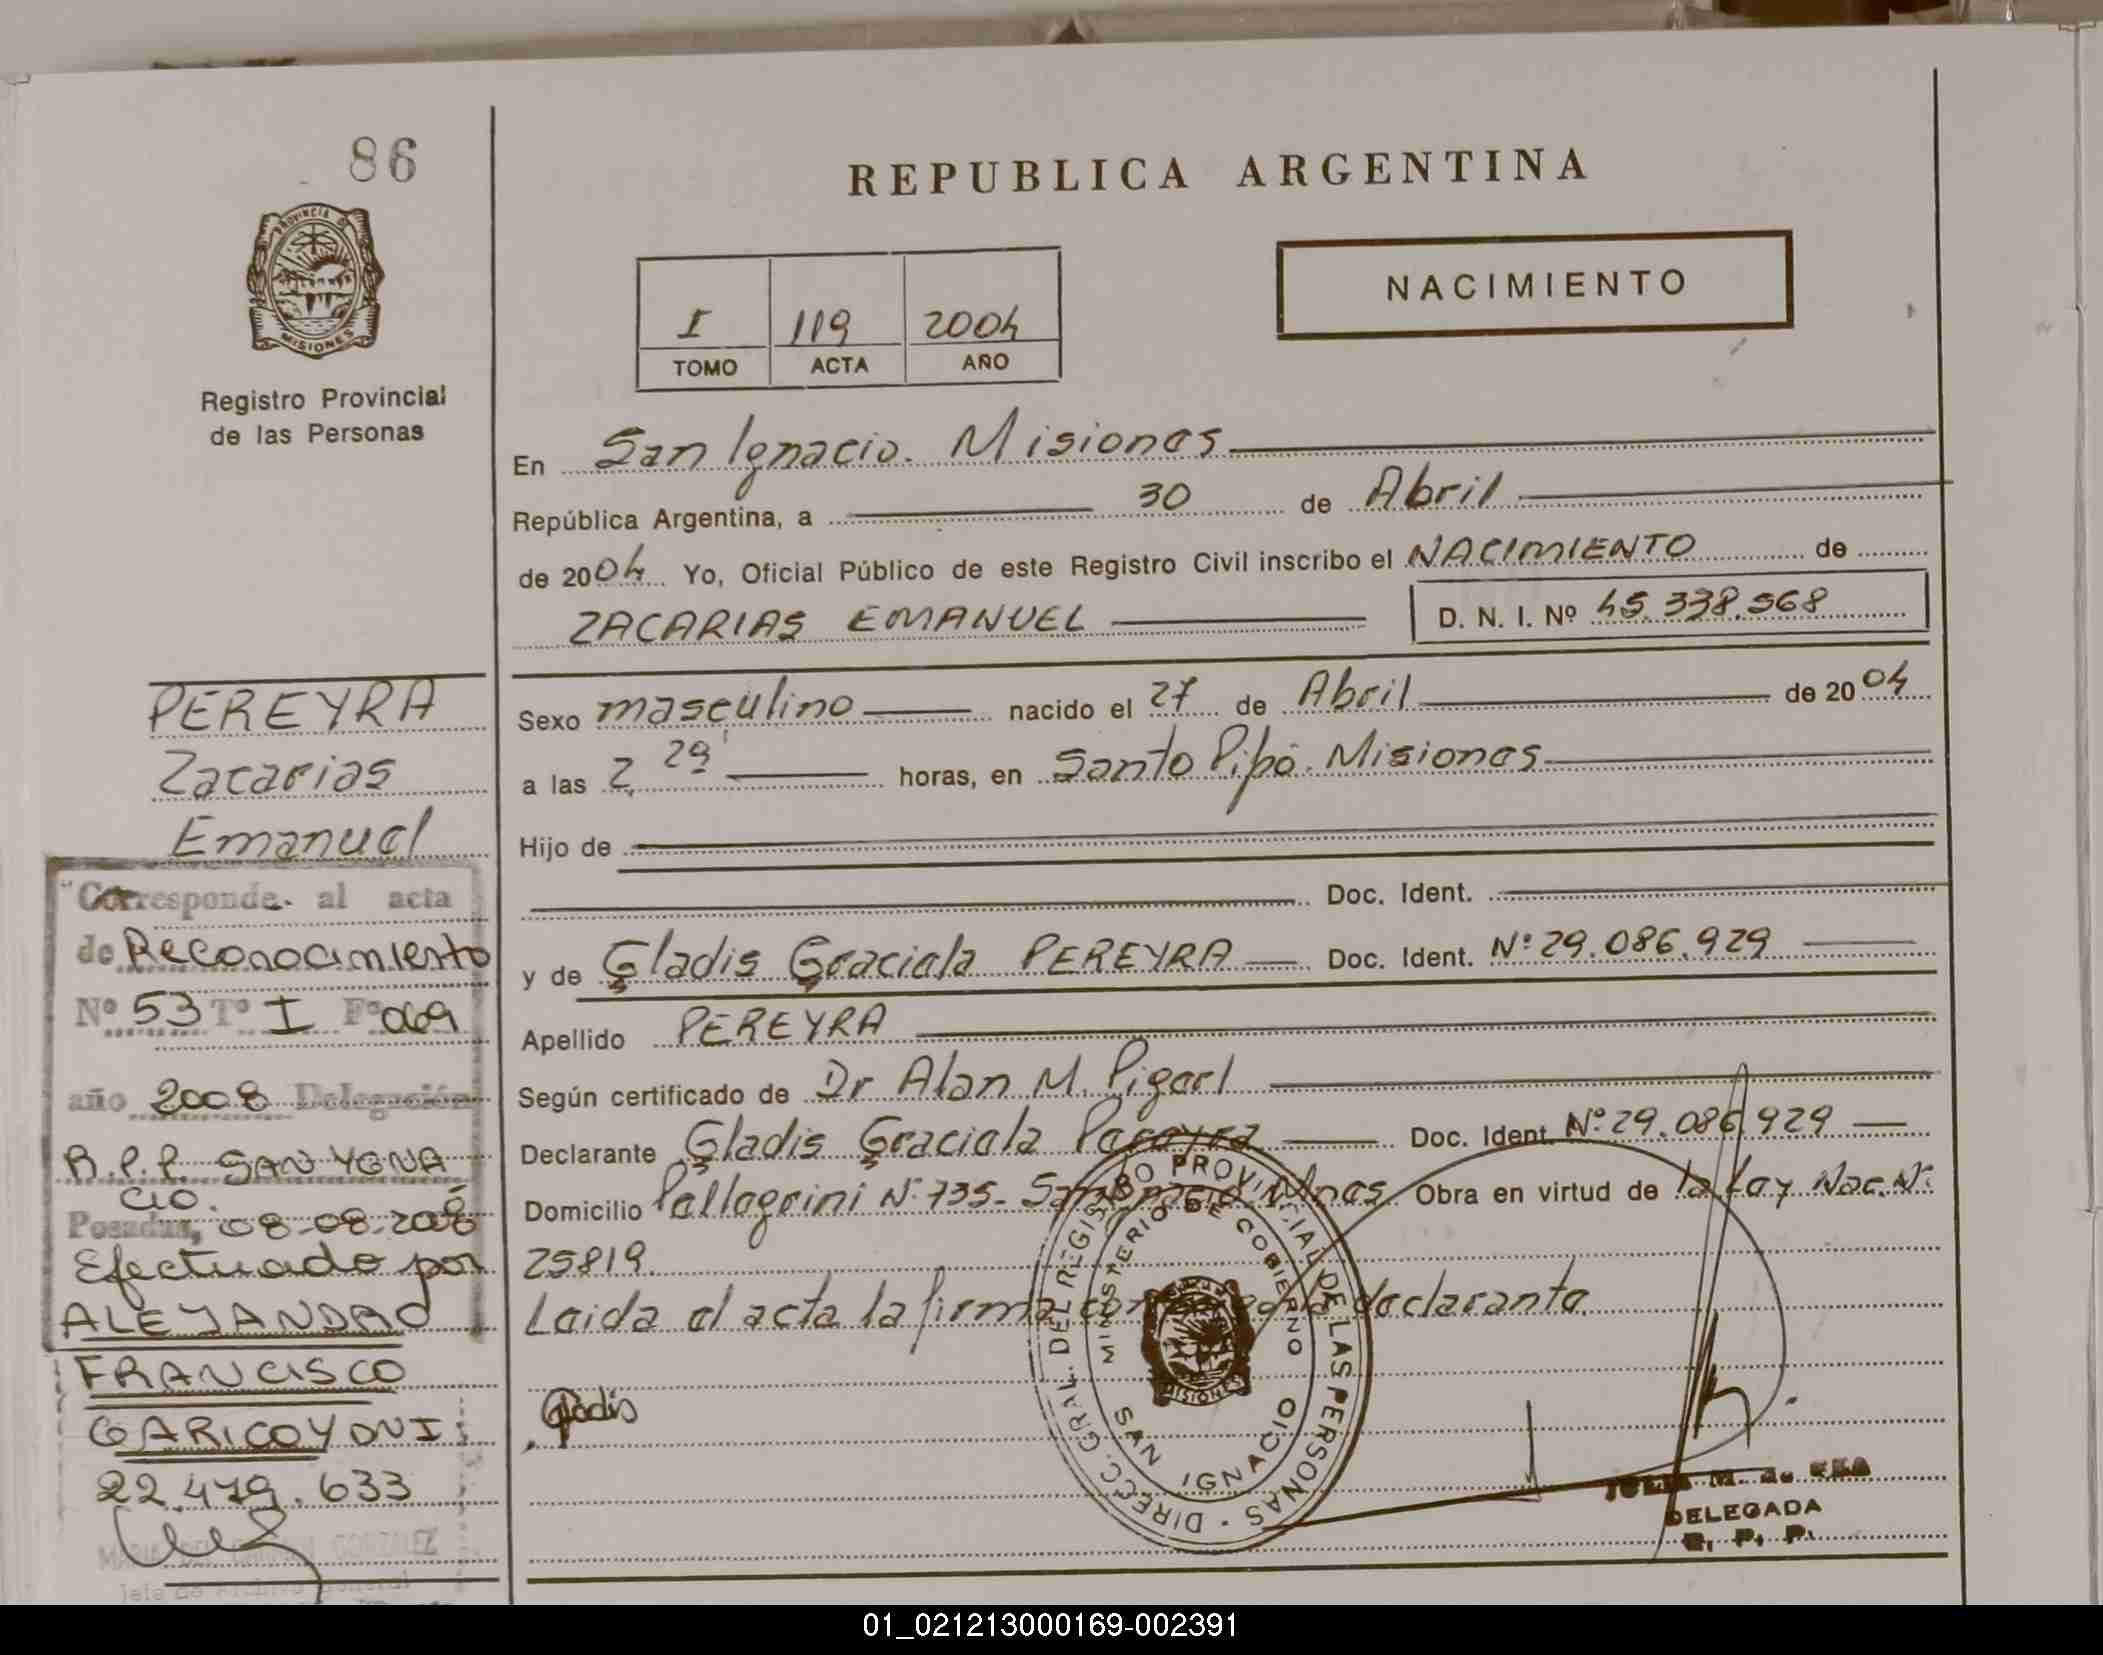 86
PROVINCIA DE
MISIONES
Registro Provincial
de las Personas
PEREYRA
Zacarias
Emanuel
"Corresponde al acta
de Reconocimiento
Nº 53 Tº I Fº 069
año 2008 Delegación
R.P.P. SAN YGNA
CIO.
Posadas, 08-08-2008
Efectuado por
ALEJANDRO
FRANCISCO
GARICOYDNI
22.479.633
GONZALEZ
Jefe de Archivo General
REPUBLICA ARGENTINA
I 119 2004
TOMO ACTA AÑO
NACIMIENTO
En San Ignacio. Misiones
República Argentina, a 30 de Abril
de 2004 Yo, Oficial Público de este Registro Civil inscribo el NACIMIENTO de
ZACARIAS EMANUEL D. N. I. Nº 45.338.568
Sexo masculino nacido el 27 de Abril de 2004
a las 2,29' horas, en Santo Pipó. Misiones
Hijo de
Doc. Ident.
y de Gladis Graciela PEREYRA Doc. Ident. Nº 29.086.929
Apellido PEREYRA
Según certificado de Dr Alan M. Pigerl
Declarante Gladis Graciela Pereyra Doc. Ident. Nº 29.086.929
Domicilio Pellegrini Nº 735- San Ignacio Mnes. Obra en virtud de la Ley Nac. Nº
25819.
Leida el acta la firma conmigo la declarante.
Gladis
DIREC. GRAL. DEL REGISTRO PROVINCIAL DE LAS PERSONAS
MINISTERIO DE GOBIERNO
MISIONES
SAN IGNACIO
DELEGADA
R. P. P.
01_021213000169-002391